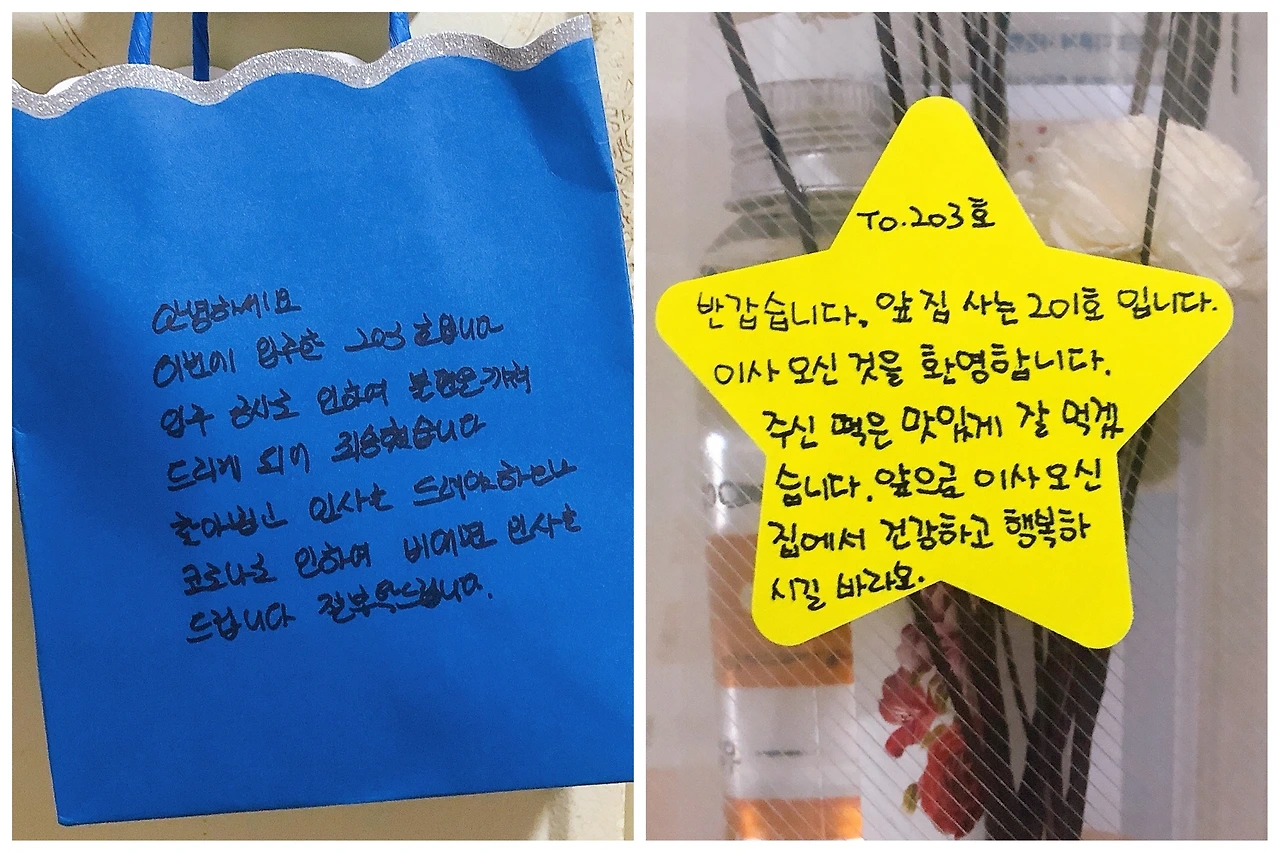 안녕하세요
이번에 입주한 203호입니다
입주 공사로 인하여 불편을 끼쳐
드리게 되어 죄송했습니다
찾아뵙고 인사를 드려야하는데
코로나로 인하여 비대면 인사를
드립니다 잘부탁드립니다.
To.203호
반갑습니다, 앞집 사는 201호 입니다.
이사 오신 것을 환영합니다.
주신 떡은 맛있게 잘 먹겠
습니다. 앞으로 이사오신
집에서 건강하고 행복하
시길 바라요.